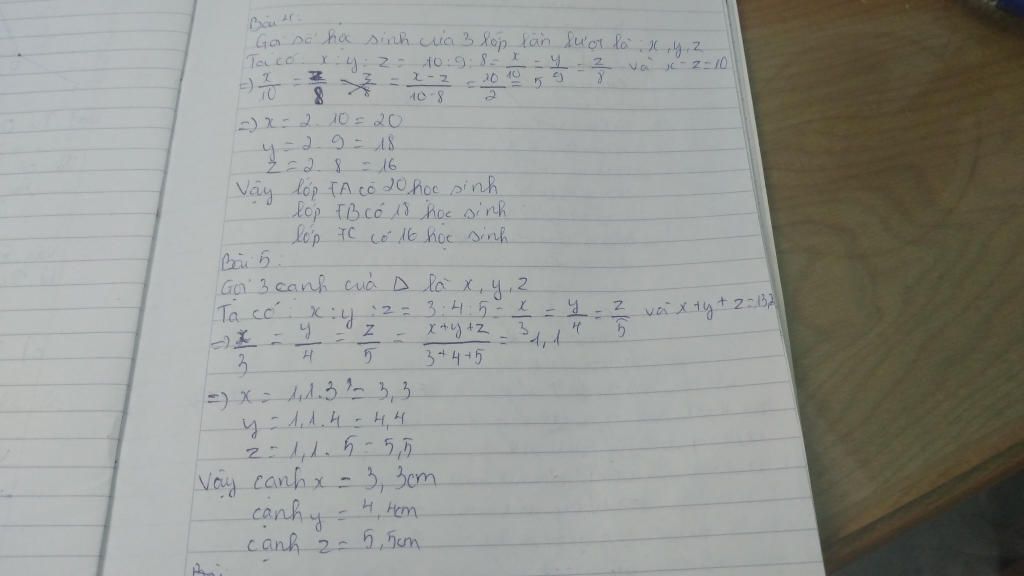 Bài 4:
Gọi số học sinh của 3 lớp lần lượt là: x, y, z
Ta có: x : y : z = 10 : 9 : 8 = x/10 = y/9 = z/8 và x - z = 10
=> x/10 = z/8 = x-z/10-8 = 10/2 = 5
=> x = 2 . 10 = 20
y = 2 . 9 = 18
z = 2 . 8 = 16
Vậy lớp 7A có 20 học sinh
lớp 7B có 18 học sinh
lớp 7C có 16 học sinh
Bài 5:
Gọi 3 cạnh của Δ là x, y, z
Ta có: x : y : z = 3 : 4 : 5 = x/3 = y/4 = z/5 và x + y + z = 13,2
=> x/3 = y/4 = z/5 = x+y+z/3+4+5 = 1,1
=> x = 1,1 . 3 = 3,3
y = 1,1 . 4 = 4,4
z = 1,1 . 5 = 5,5
Vậy cạnh x = 3,3cm
cạnh y = 4,4cm
cạnh z = 5,5cm